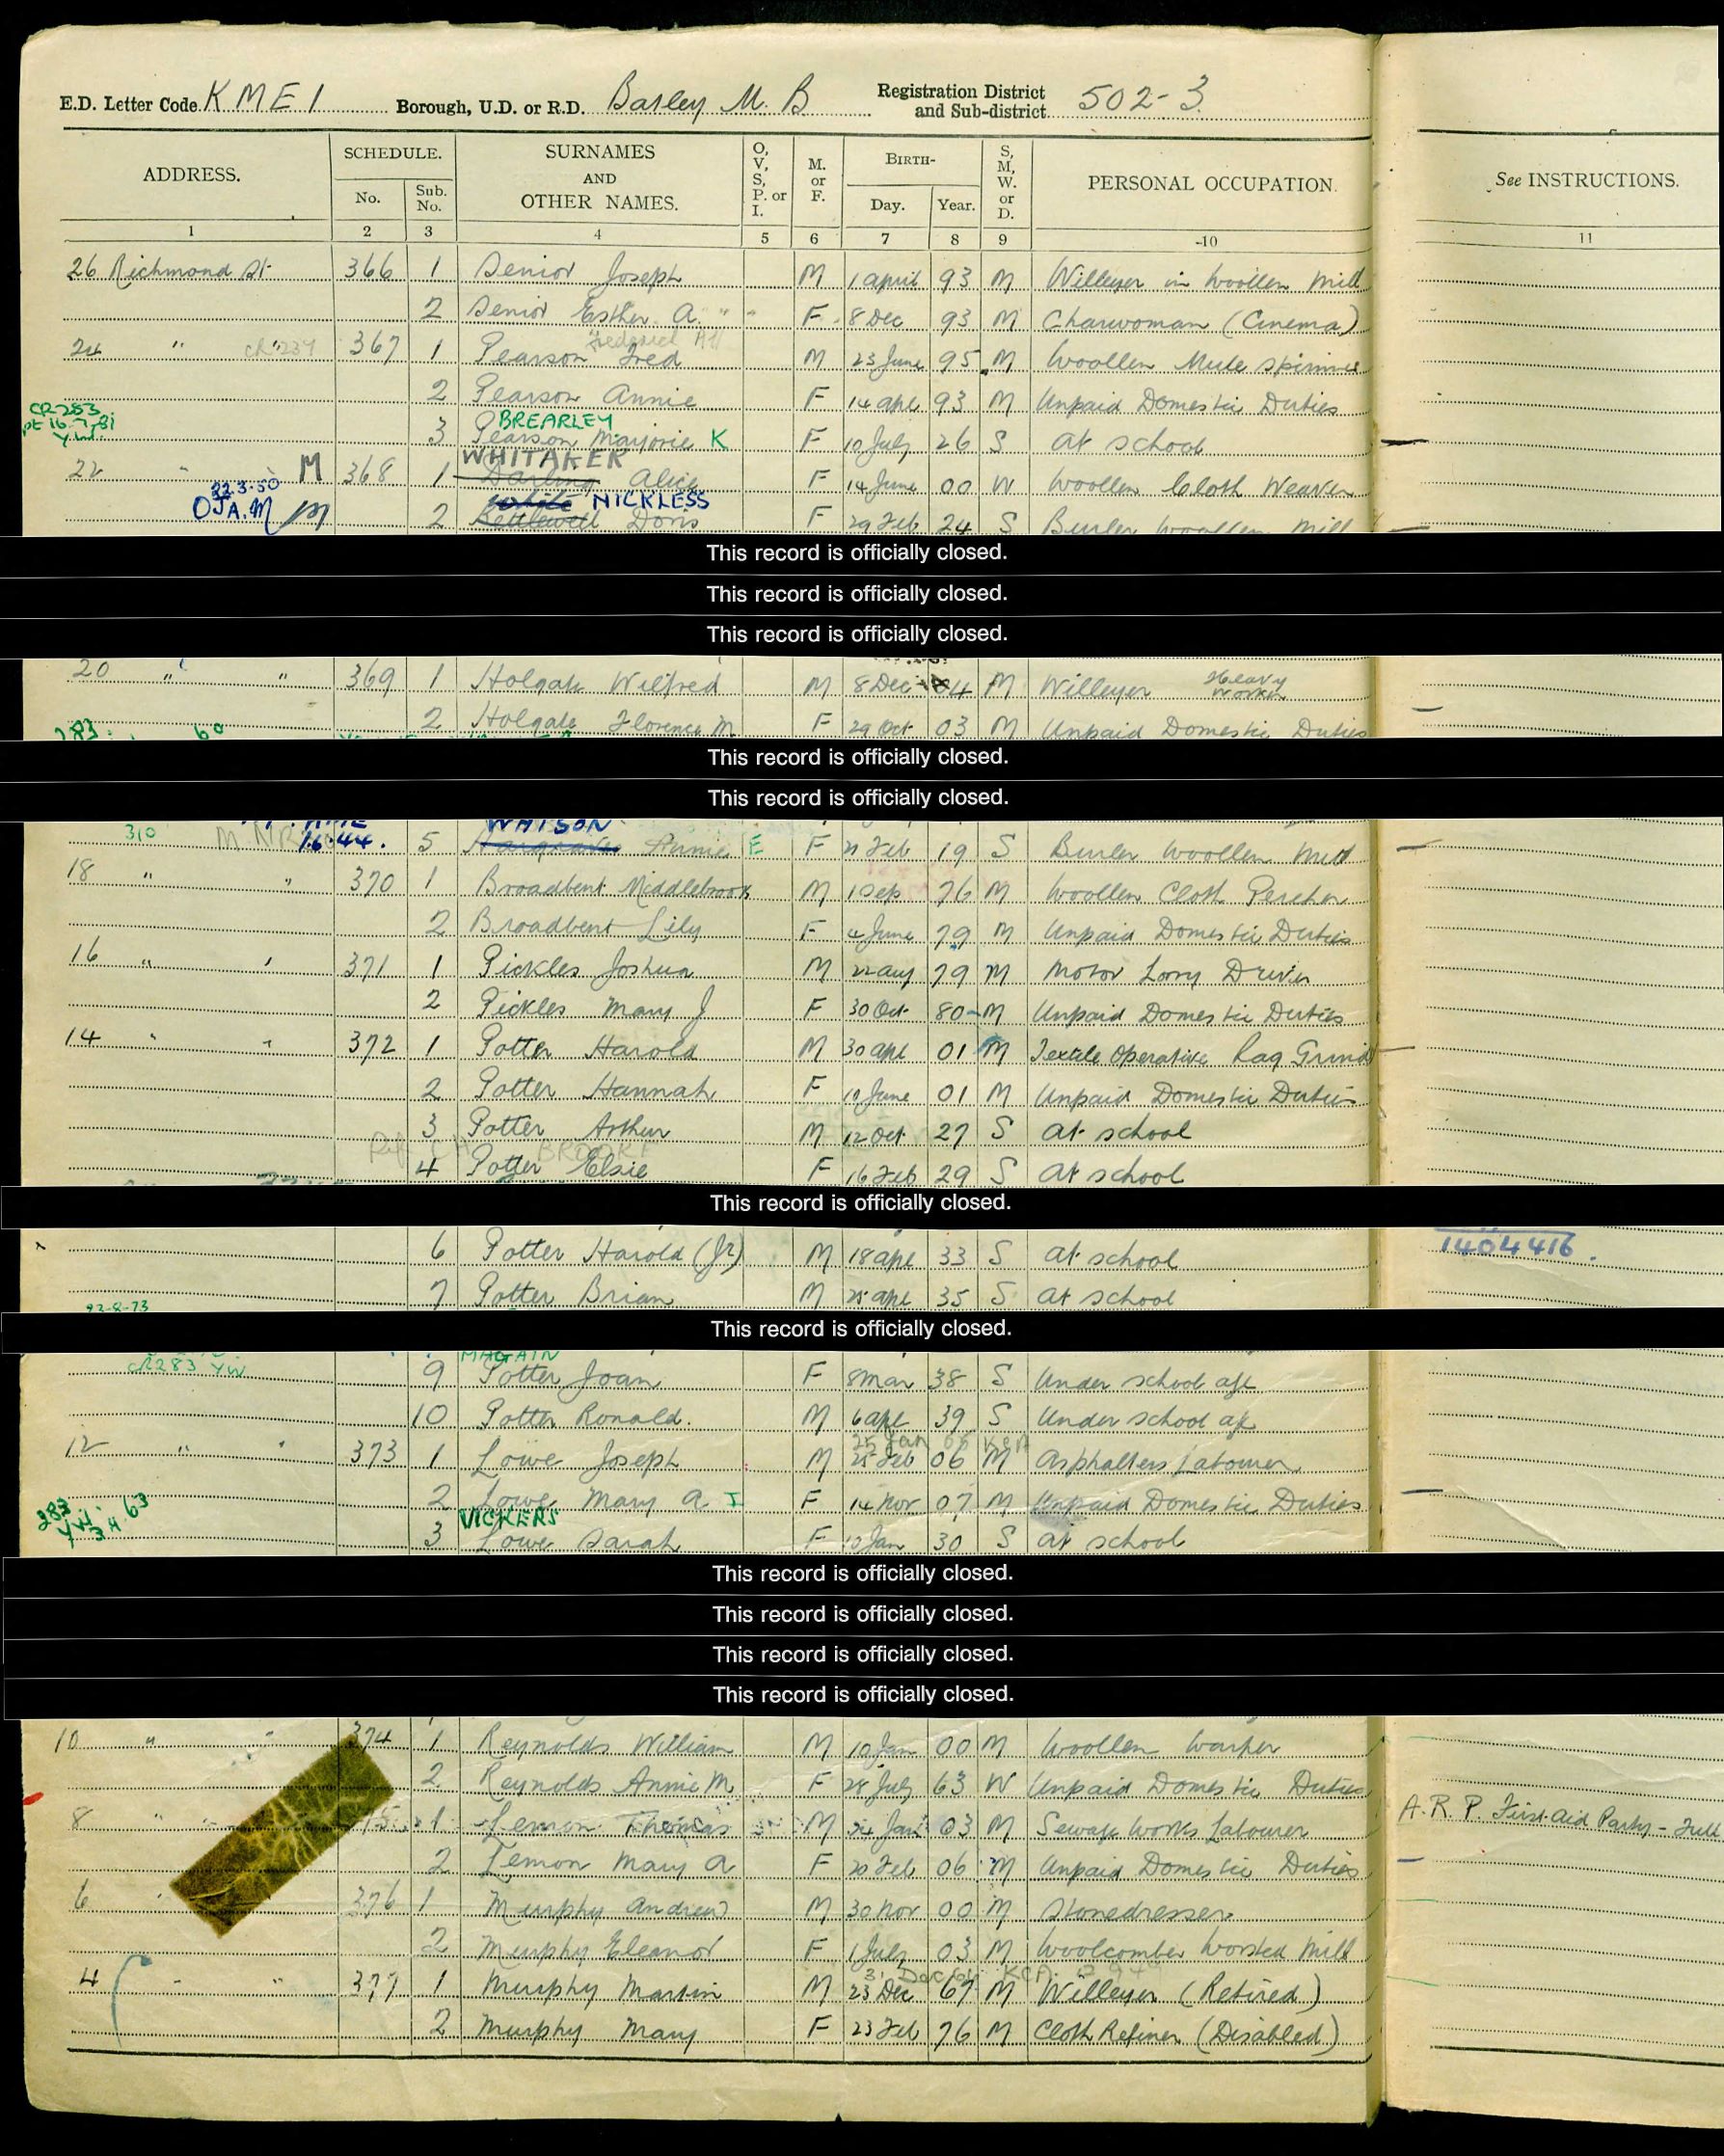 E.D. Letter Code KME 1 Borough, U.D. or R.D. Batley M. B. Registration District and Sub-district 502-3
ADDRESS. SCHEDULE. No. Sub. No. SURNAMES AND OTHER NAMES. O, V, S, P. or I. M. or F. BIRTH- Day. Year. S, M, W. or D. PERSONAL OCCUPATION. See INSTRUCTIONS.
1 2 3 4 5 6 7 8 9 10 11
26 Richmond St. 366 1 Senior Joseph M 1 April 93 M Willeyer in Woollen Mill
2 Senior Esther A. " " F 8 Dec 93 M Charwoman (Cinema)
Frederick
24 " CR 234 367 1 Pearson Fred M 23 June 95 M Woollen Mule Spinner
2 Pearson Annie F 14 Apl 93 M Unpaid Domestic Duties
CR 283 BREARLEY
3 Pearson Marjorie K F 10 July 26 S At school
WHITAKER
22 " M 368 1 Darling Alice F 14 June 00 W Woollen Cloth Weaver
22.3.50 White NICKLESS
OJA.M M 2 Kettlewell Doris F 29 Feb 24 S Burler Woollen Mill
This record is officially closed.
This record is officially closed.
This record is officially closed.
20 " " 369 1 Holgate Wilfred M 8 Dec 04 M Willeyer Heavy Worker
2 Holgate Florence M. F 29 Oct 03 M Unpaid Domestic Duties
This record is officially closed.
This record is officially closed.
WATSON
310 16.44. 5 Hargrave Annie E F 21 Feb 19 S Burler Woollen Mill
18 " " 370 1 Broadbent Middlebrook M 1 Sep 76 M Woollen Cloth Percher
2 Broadbent Lily F 4 June 79 M Unpaid Domestic Duties
16 " " 371 1 Pickles Joshua M 22 Aug 79 M Motor Lorry Driver
2 Pickles Mary J F 30 Oct 80 M Unpaid Domestic Duties
14 " " 372 1 Potter Harold M 30 Apl 01 M Textile Operative Rag Grind
2 Potter Hannah F 10 June 01 M Unpaid Domestic Duties
3 Potter Arthur M 12 Oct 27 S At school
4 Potter Elsie F 16 Feb 29 S At school
This record is officially closed.
6 Potter Harold (Jr) M 18 Apl 33 S At school 1404416.
7 Potter Brian M 25 Apl 35 S At school
This record is officially closed.
CR 283 YW MAGAIN
9 Potter Joan F 8 Mar 38 S Under school age
10 Potter Ronald. M 6 Apl 39 S Under school age
25 Jan
12 " " 373 1 Lowe Joseph M 25 Feb 06 M Asphalters Labourer
2 Lowe Mary A I F 14 Nov 07 M Unpaid Domestic Duties
VICKERS
3 Lowe Sarah F 10 Jan 30 S At school
This record is officially closed.
This record is officially closed.
This record is officially closed.
This record is officially closed.
10 " " 374 1 Reynolds William M 10 Jan 00 M Woollen Warper
2 Reynolds Annie M. F 28 July 63 W Unpaid Domestic Duties
8 " 1 Lemon Thomas M 24 Jan 03 M Sewage Works Labourer A.R.P. First Aid Party - Full
2 Lemon Mary A F 20 Feb 06 M Unpaid Domestic Duties
6 " 376 1 Murphy Andrew M 30 Nov 00 M Stonedresser
2 Murphy Eleanor F 1 July 03 M Woolcomber Worsted Mill
4 " " 377 1 Murphy Martin M 23 Dec 67 M Willeyer (Retired)
2 Murphy Mary F 23 Feb 76 M Cloth Refiner (Disabled)